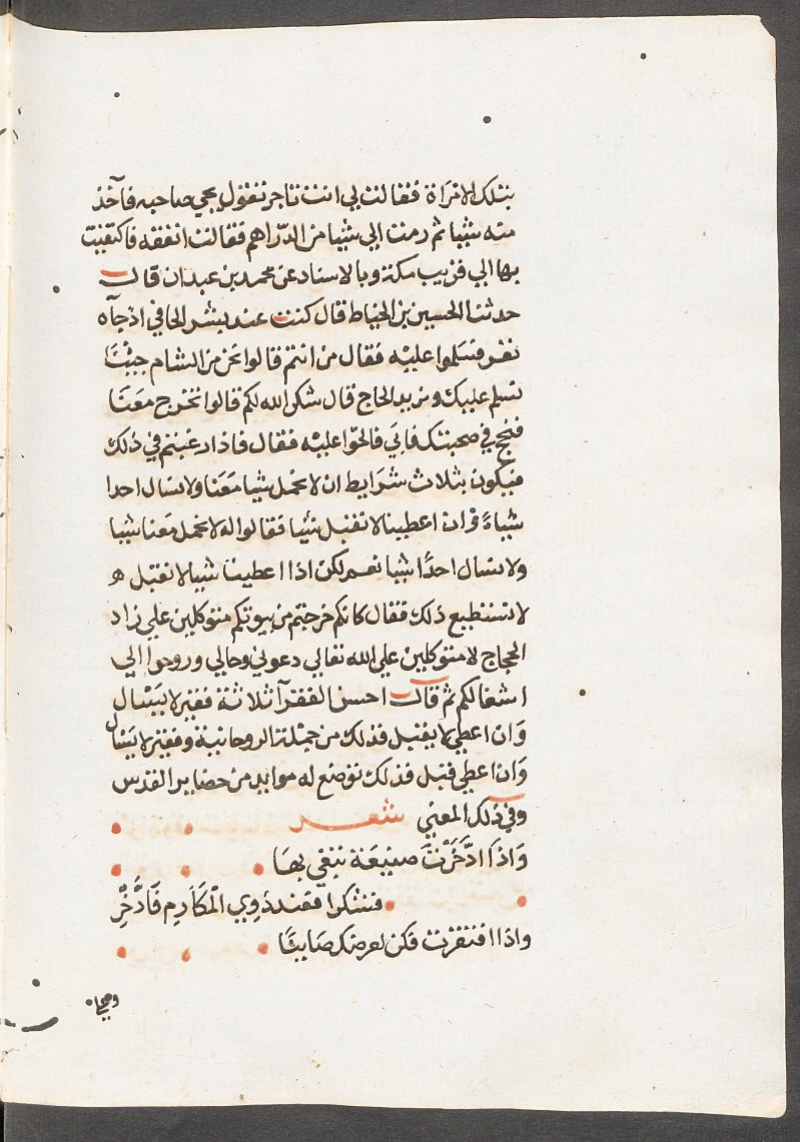 بتلك الامراة فقالت لي انت تاجر تقول يجي صاحبه فآخذ
منه شيا ثم رمت الي شيا من الدراهم فقالت انفقه فاكتفيت
بها الي قريب مكة وبالاسناد عن محمد بن عبدان قال
حدثنا الحسين بن الخياط قال كنت عند بشر الحافي اذ جآه
نفر فسلموا عليه فقال من انتم قالوا نحن من الشام جئنا
نسلم عليك ونريد الحاج قال شكر الله لكم قالوا تخرج معنا
فنحج في صحبتك فابي فالحوا عليه فقال فاذا رغبتم في ذلك
فيكون بثلاث شرايط ان لا نحمل شيا معنا ولا نسال احدا
شياء وان اعطينا لا نقبل شيا فقالوا له لا نحمل معنا شيا
ولا نسال احدًا شيا نعم لكن اذا اعطينا شيا لا نقبل ه
لا نستطيع ذلك فقال كانكم خرجتم من بيوتكم متوكلين علي زاد
الحجاج لا متوكلين علي الله تعالي دعوني وحالي وروحوا الي
اشغالكم ثم قال احسن الفقرآ ثلاثة فقير لا يسال
وان اعطي لا يقبل فذلك من جملة الروحانية وفقير لا يسال
وان اعطي قبل فذلك توضع له موايد من حضاير القدس
وفي ذلك المعني شعر
وَاذَا ادَّخَرْتَ صنيعَة تبغي بهَا
فتشكرا فعند ذوي المكَارِم فَادَّخِرِ
واذا افتقرت فكن لعرضك صَاينًا
ومجا